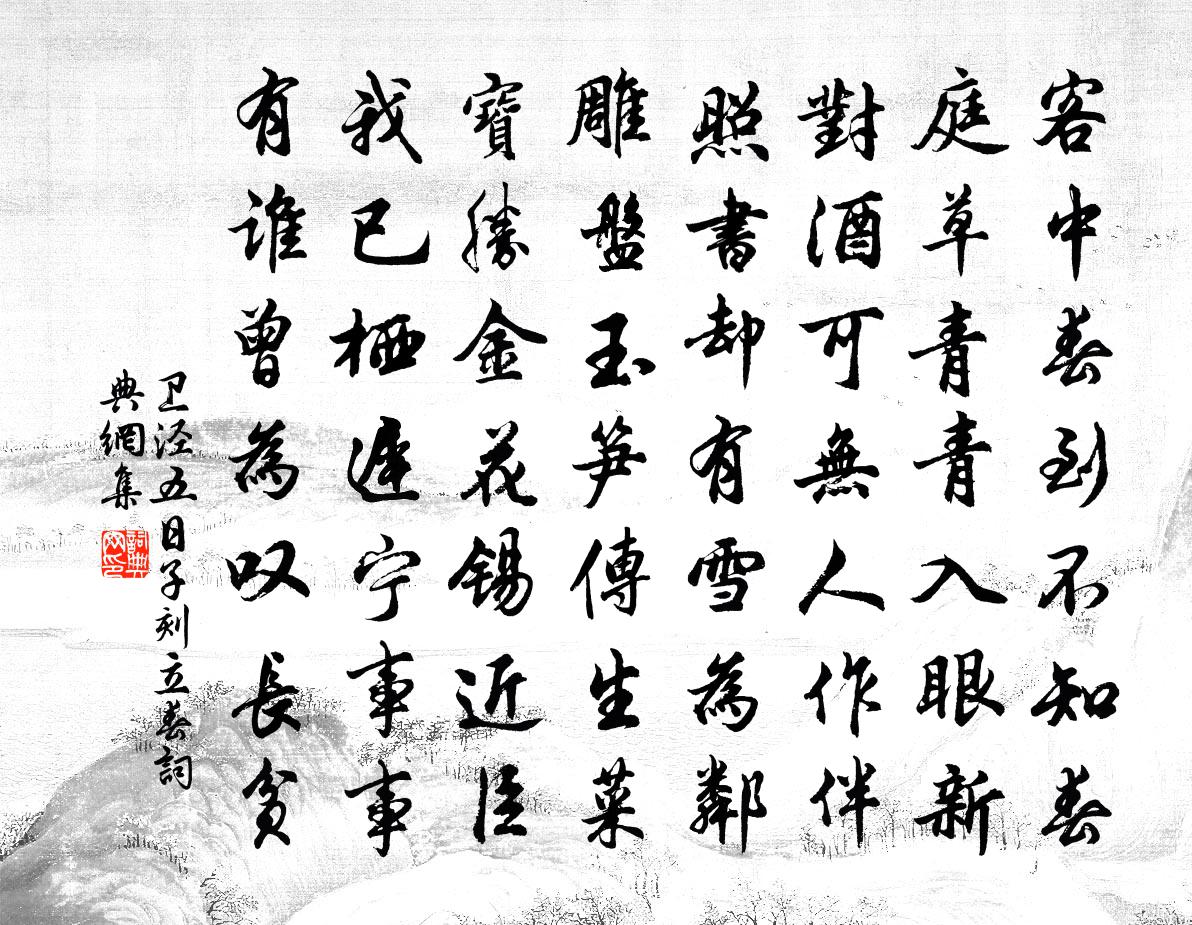 客中春到不知春
庭草青青入眼新
對酒可無人作伴
照書却有雪為鄰
雕盤玉笋傳生菜
寶勝金花錫近臣
我已栖遲宁事事
有谁曾為叹長貧
卫泾五日子刻立春詞
典網集
詞典网印